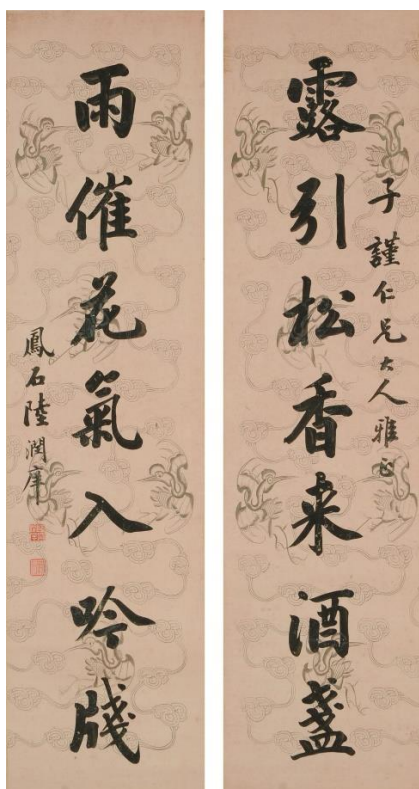 露引松香来酒盞
子謹仁兄大人雅正
雨催花氣入吟牋
鳳石陸潤庠